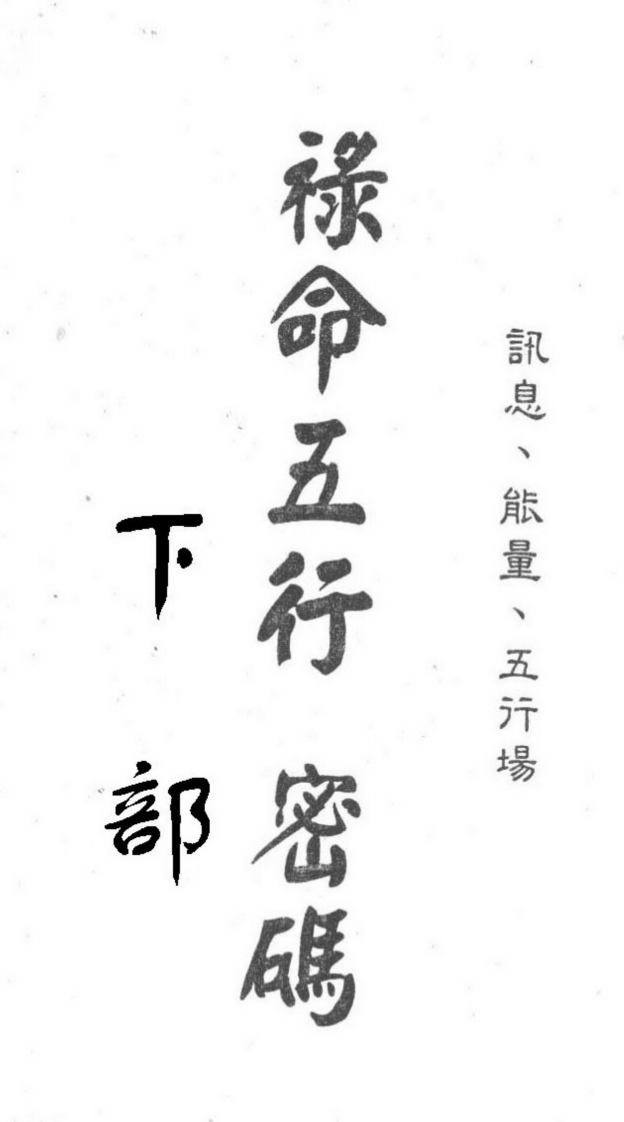 訊息、能量、五行場
祿命五行 密碼
下部